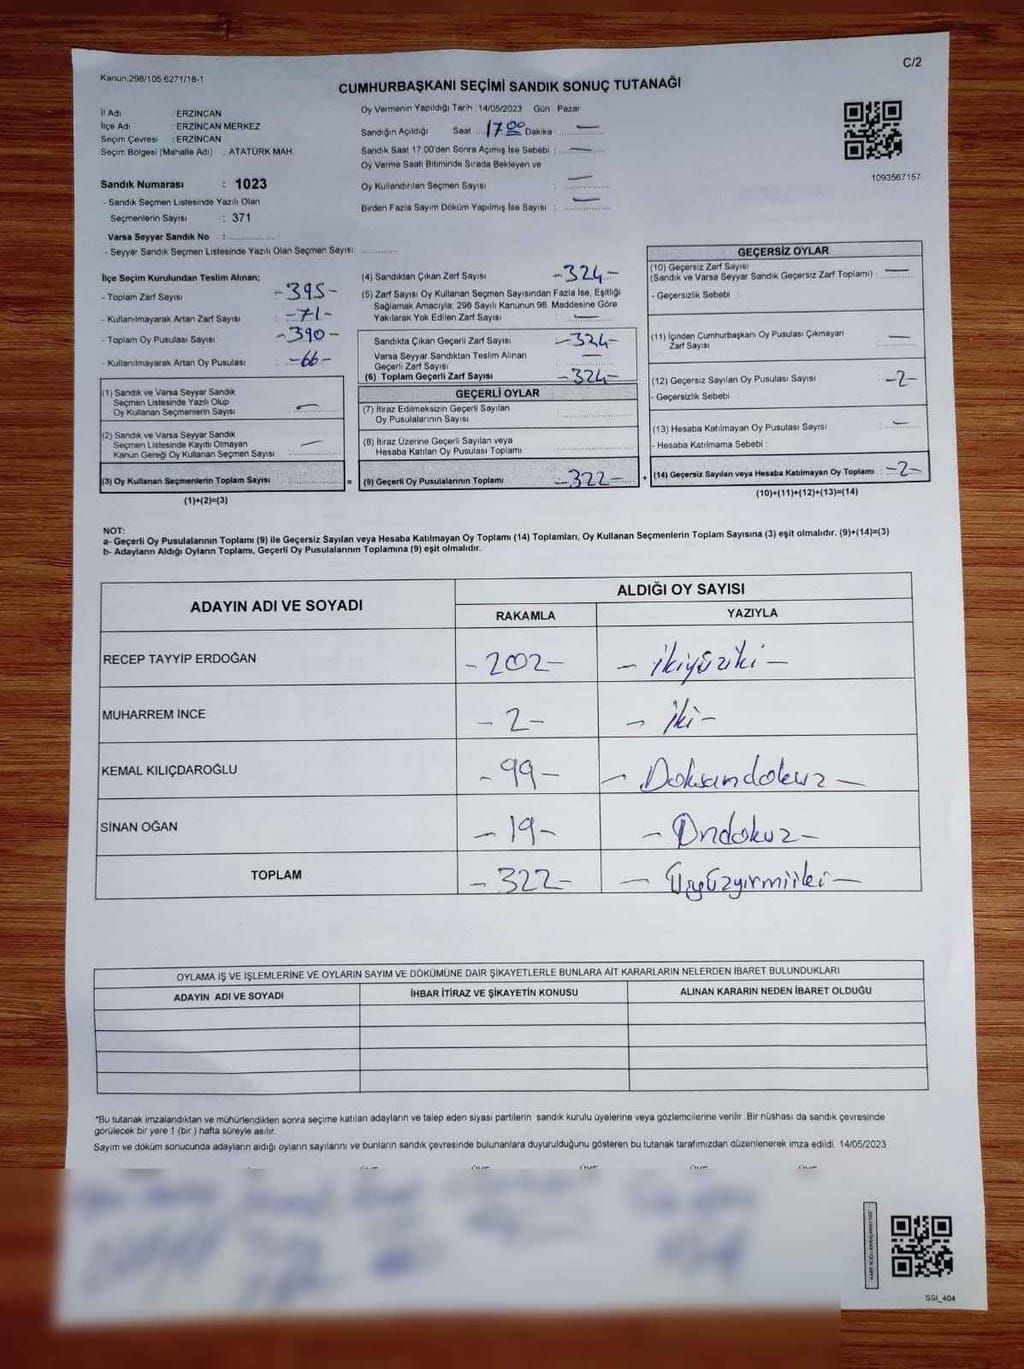 Kanun:298/105:6271/18-1
C/2
CUMHURBAŞKANI SEÇİMİ SANDIK SONUÇ TUTANAĞI
İl Adı : ERZİNCAN
İlçe Adı : ERZİNCAN MERKEZ
Seçim Çevresi : ERZİNCAN
Seçim Bölgesi (Mahalle Adı) : ATATÜRK MAH.
Sandık Numarası : 1023
- Sandık Seçmen Listesinde Yazılı Olan
Seçmenlerin Sayısı : 371
Varsa Seyyar Sandık No :
- Seyyar Sandık Seçmen Listesinde Yazılı Olan Seçmen Sayısı:
Oy Vermenin Yapıldığı Tarih : 14/05/2023 Gün : Pazar
Sandığın Açıldığı Saat 17 00 Dakika —
Sandık Saat 17:00'den Sonra Açımış İse Sebebi : —
Oy Verme Saati Bitiminde Sırada Bekleyen ve
Oy Kullandırılan Seçmen Sayısı : —
Birden Fazla Sayım Döküm Yapılmış İse Sayısı : —
1093567157
İlçe Seçim Kurulundan Teslim Alınan;
- Toplam Zarf Sayısı : -395-
- Kullanılmayarak Artan Zarf Sayısı : -71-
- Toplam Oy Pusulası Sayısı : -390-
- Kullanılmayarak Artan Oy Pusulası : -66-
(1) Sandık ve Varsa Seyyar Sandık
Seçmen Listesinde Yazılı Olup
Oy Kullanan Seçmenlerin Sayısı : —
(2) Sandık ve Varsa Seyyar Sandık
Seçmen Listesinde Kayıtlı Olmayan
Kanun Gereği Oy Kullanan Seçmen Sayısı : —
(3) Oy Kullanan Seçmenlerin Toplam Sayısı :
=
(1)+(2)=(3)
(4) Sandıktan Çıkan Zarf Sayısı : -324-
(5) Zarf Sayısı Oy Kullanan Seçmen Sayısından Fazla İse, Eşitliği
Sağlamak Amacıyla; 298 Sayılı Kanunun 98. Maddesine Göre
Yakılarak Yok Edilen Zarf Sayısı : —
Sandıkta Çıkan Geçerli Zarf Sayısı : -324-
Varsa Seyyar Sandıktan Teslim Alınan
Geçerli Zarf Sayısı : —
(6) Toplam Geçerli Zarf Sayısı : -324-
GEÇERLİ OYLAR
(7) İtiraz Edilmeksizin Geçerli Sayılan
Oy Pusulalarının Sayısı :
(8) İtiraz Üzerine Geçerli Sayılan veya
Hesaba Katılan Oy Pusulası Toplamı :
(9) Geçerli Oy Pusulalarının Toplamı : -322-
+
GEÇERSİZ OYLAR
(10) Geçersiz Zarf Sayısı
(Sandık ve Varsa Seyyar Sandık Geçersiz Zarf Toplamı) : —
- Geçersizlik Sebebi :
(11) İçinden Cumhurbaşkanı Oy Pusulası Çıkmayan
Zarf Sayısı : —
(12) Geçersiz Sayılan Oy Pusulası Sayısı : -2-
- Geçersizlik Sebebi :
(13) Hesaba Katılmayan Oy Pusulası Sayısı : —
- Hesaba Katılmama Sebebi :
(14) Geçersiz Sayılan veya Hesaba Katılmayan Oy Toplamı : -2-
(10)+(11)+(12)+(13)=(14)
NOT:
a- Geçerli Oy Pusulalarının Toplamı (9) ile Geçersiz Sayılan veya Hesaba Katılmayan Oy Toplamı (14) Toplamları, Oy Kullanan Seçmenlerin Toplam Sayısına (3) eşit olmalıdır. (9)+(14)=(3)
b- Adayların Aldığı Oyların Toplamı, Geçerli Oy Pusulalarının Toplamına (9) eşit olmalıdır.
ADAYIN ADI VE SOYADI
ALDIĞI OY SAYISI
RAKAMLA YAZIYLA
RECEP TAYYİP ERDOĞAN -202- - ikiyüziki -
MUHARREM İNCE -2- - iki -
KEMAL KILIÇDAROĞLU -99- - Doksandokuz -
SİNAN OĞAN -19- - Ondokuz -
TOPLAM -322- - Üçyüzyirmiiki -
OYLAMA İŞ VE İŞLEMLERİNE VE OYLARIN SAYIM VE DÖKÜMÜNE DAİR ŞİKAYETLERLE BUNLARA AİT KARARLARIN NELERDEN İBARET BULUNDUKLARI
ADAYIN ADI VE SOYADI İHBAR İTİRAZ VE ŞİKAYETİN KONUSU ALINAN KARARIN NEDEN İBARET OLDUĞU
*Bu tutanak imzalandıktan ve mühürlendikten sonra seçime katılan adayların ve talep eden siyasi partilerin sandık kurulu üyelerine veya gözlemcilerine verilir. Bir nüshası da sandık çevresinde
görülecek bir yere 1 (bir ) hafta süreyle asılır.
Sayım ve döküm sonucunda adayların aldığı oyların sayılarını ve bunların sandık çevresinde bulunanlara duyurulduğunu gösteren bu tutanak tarafımızdan düzenlenerek imza edildi. 14/05/2023
SSI_404